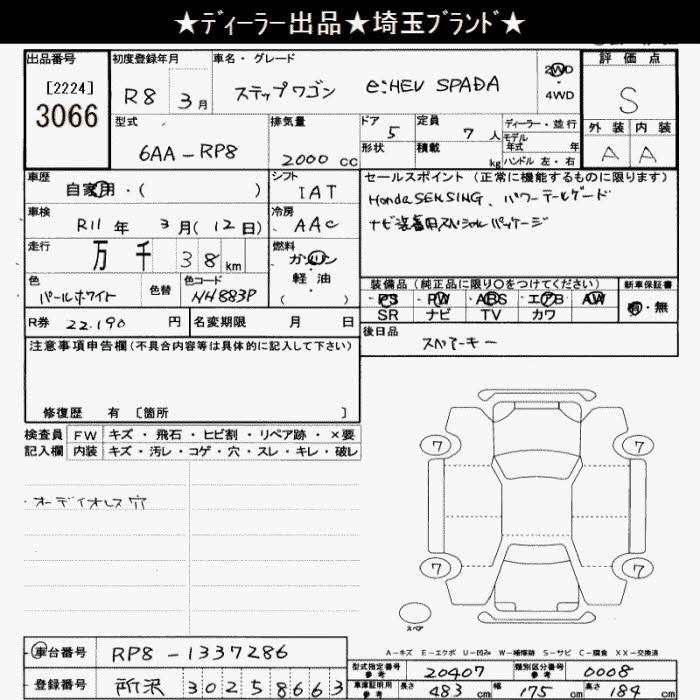 ★ディーラー出品★埼玉ブランド★
出品番号 初度登録年月 車名・グレード 評価点
[2224]
3066
R8 3月 ステップワゴン e:HEV SPADA 2WD 4WD S
型式 排気量 ドア 定員 ディーラー・並行 外装 内装
6AA-RP8 2000cc 5 7人 モデル年式 年 A A
形状 積載 kg ハンドル 左・右
車歴 自家用・( ) シフト IAT セールスポイント(正常に機能するものに限ります)
Honda SENSING、パワーテールゲート
車検 R11年 3月(12日) 冷房 AAC ナビ装着用スペシャルパッケージ
走行 万 千 38km 燃料 ガソリン・軽油 ( )
色 パールホワイト 色替 色コード NH883P
装備品(純正品に限り○をつけてください) 新車保証書
PS PW ABS エアB AW 有・無
SR ナビ TV カワ
R券 22.190円 名変期限 月 日
後日品 スペアーキー
注意事項申告欄(不具合内容等は具体的に記入して下さい)
修復歴 有 〔箇所 〕
検査員 FW キズ・飛石・ヒビ割・リペア跡・×要
記入欄 内装 キズ・汚レ・コゲ・穴・スレ・キレ・破レ
オーディオレス穴
7 7
7 7
スペア
A-キズ E-エクボ U-凹み W-補修跡 S-サビ C-腐食 XX-交換済
車台番号 RP8-1337286
型式指定番号 参考 20407 類別区分番号 参考 0008
登録番号 所沢 302 58663
車庫証明用 参考 長さ 483cm 幅 175cm 高さ 184cm